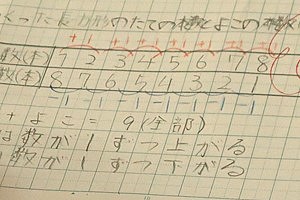 くった長方形のたての棒とよこの棒
+1 +1 +1 +1 +1 +1 +1
数(本) 1 2 3 4 5 6 7 8
数(本) 8 7 6 5 4 3 2 1
-1 -1 -1 -1 -1 -1 -1
+よこ= 9(全部)
は数が1ずつ上がる
数が1ずつ下がる